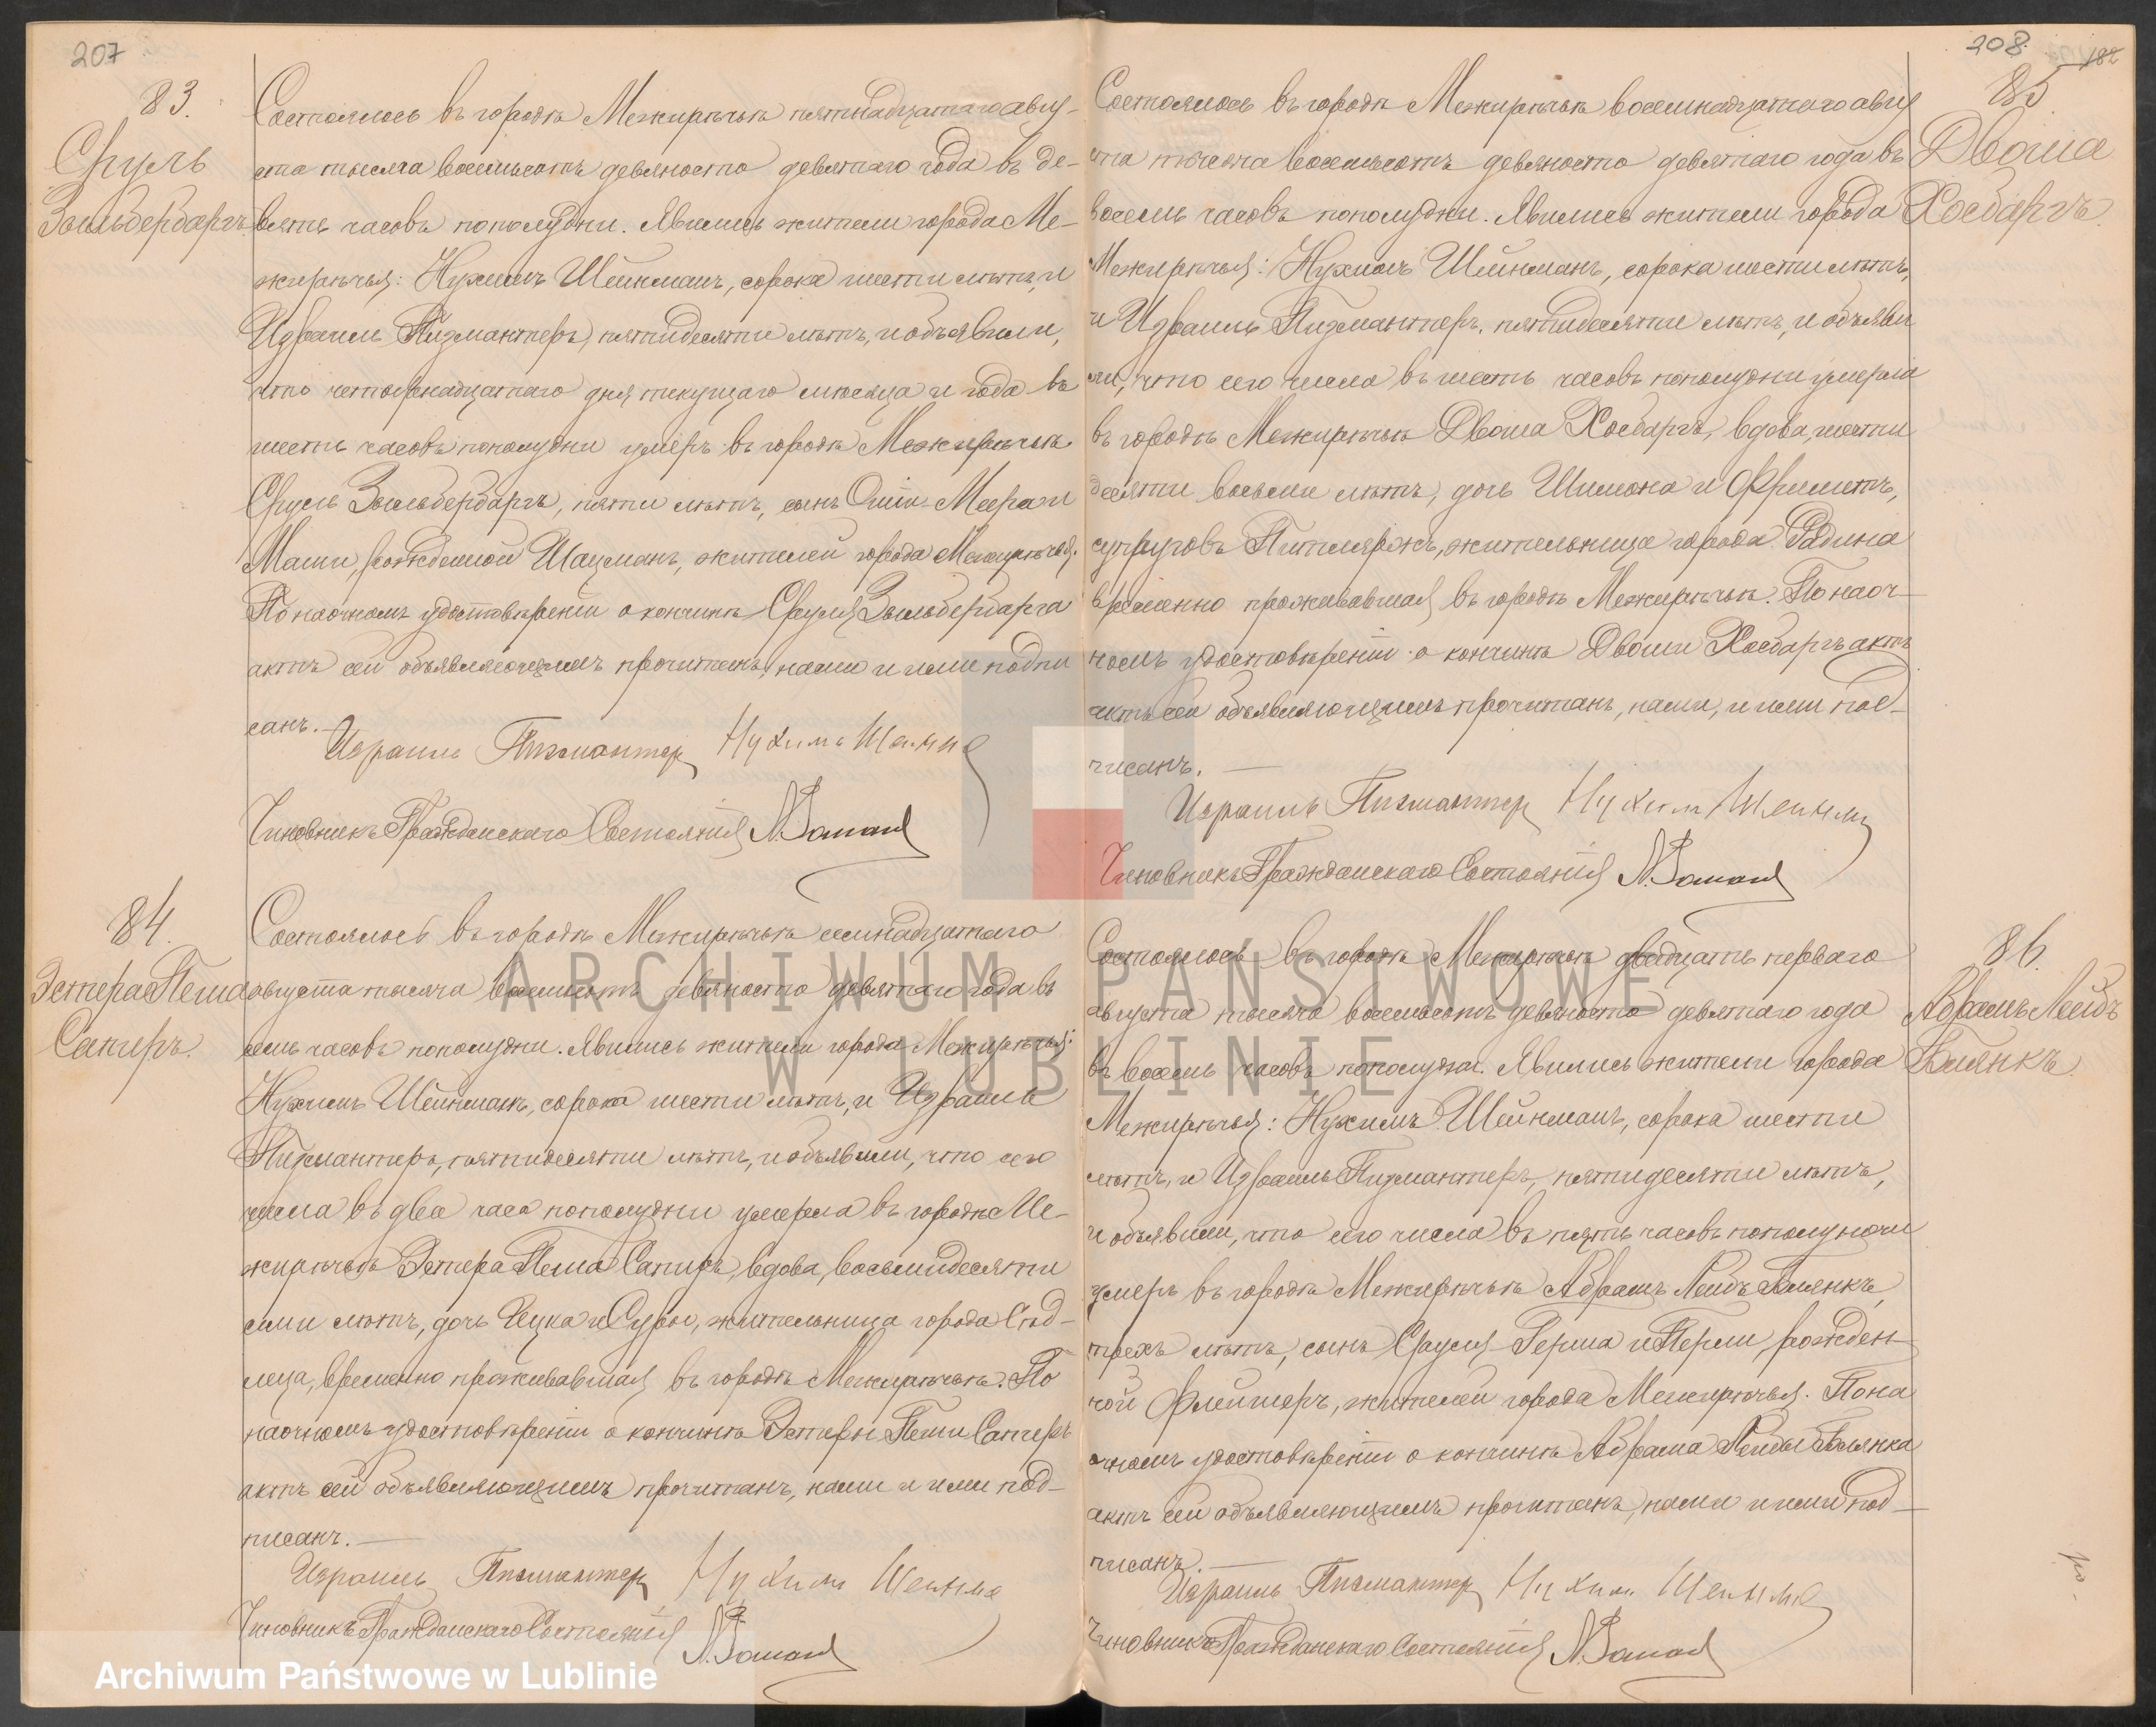 207
83.
Сруль
Зыльбербаргъ
Состоялось въ городѣ Межирѣчьѣ пятнадцатаго авгу-
ста тысяча восемьсотъ девяносто девятаго года въ де-
вять часовъ пополудни. Явились жители города Ме-
жирѣчья: Нухимъ Шейнманъ, сорока шести лѣтъ, и
Израиль Пизмантеръ, пятидесяти лѣтъ, и объявили,
что четырнадцатаго дня текущаго мѣсяца и года въ
шесть часовъ пополудни умеръ въ городѣ Межирѣчьѣ
Сруль Зыльбербаргъ, пяти лѣтъ, сынъ Меера и
Маши, рожденной Шацманъ, жителей города Межирѣчья.
По наочномъ удостовѣреніи о кончинѣ Сруля Зыльбербарга
актъ сей объявляющимъ прочитанъ, нами и ими подпи
санъ.
Израиль Пизмантер Нухимъ Шеинма
Чиновникъ Гражданскаго Состоянія
84.
Эстера Пеша
Сапиръ.
Состоялось въ городѣ Межирѣчьѣ семнадцатаго
августа тысяча восемьсотъ девяносто девятаго года въ
семь часовъ пополудни. Явились жители города Межирѣчья:
Нухимъ Шейнманъ, сорока шести лѣтъ, и Израиль
Пизмантеръ, пятидесяти лѣтъ, и объявили, что сего
числа въ два часа пополудни умерла въ городѣ Ме-
жирѣчьѣ Эстера Пеша Сапиръ, вдова, восьмидесяти
семи лѣтъ, дочь Ицка и Суры, жительница города Сѣд-
леца, временно проживавшая въ городѣ Межирѣчьѣ. По
наочномъ удостовѣреніи о кончинѣ Эстеры Пеши Сапиръ
актъ сей объявляющимъ прочитанъ, нами и ими под-
писанъ.
Израиль Пизмантер Нухим Шеинма
Чиновникъ Гражданскаго Состоянія
208.
182
85
Двоша
Хосбаргъ
Состоялось въ городѣ Межирѣчьѣ восемнадцатаго авгу
ста тысяча восемьсотъ девяносто девятаго года въ
восемь часовъ пополудни. Явились жители города
Межирѣчья: Нухимъ Шейнманъ, сорока шести лѣтъ,
и Израиль Пизмантеръ, пятидесяти лѣтъ, и объяви
ли, что сего числа въ шесть часовъ пополудни умерла
въ городѣ Межирѣчьѣ Двоша Хосбаргъ, вдова, шести
десяти восьми лѣтъ, дочь Шимона и Фриметъ,
супруговъ жительница города Радина
временно проживавшая въ городѣ Межирѣчьѣ. По наоч-
номъ удостовѣреніи о кончинѣ Двоши Хосбаргъ актъ
актъ сей объявляющимъ прочитанъ, нами, и ими под-
писанъ.
Израиль Пизмантер Нухим Шеинма
Чиновникъ Гражданскаго Состоянія
86.
Абрамъ Лейбъ
Блянкъ.
Состоялось въ городѣ Межирѣчьѣ двадцать перваго
августа тысяча восемьсотъ девяносто девятаго года
въ восемь часовъ пополудни. Явились жители города
Межирѣчья: Нухимъ Шейнманъ, сорока шести
лѣтъ, и Израиль Пизмантеръ, пятидесяти лѣтъ,
и объявили, что сего числа въ пять часовъ пополуночи
умеръ въ городѣ Межирѣчьѣ Абрамъ Лейбъ Блянкъ,
трехъ лѣтъ, сынъ Сруля Герша и Перли, рожден-
ной Флейшеръ, жителей города Межирѣчья. По на
очномъ удостовѣреніи о кончинѣ Абрама Лейбы Блянка
актъ сей объявляющимъ прочитанъ, нами и ими под-
писанъ.
Израиль Пизмантер Нухим Шеинма
Чиновникъ Гражданскаго Состоянія
ARCHIWUM PAŃSTWOWE
W LUBLINIE
Archiwum Państwowe w Lublinie